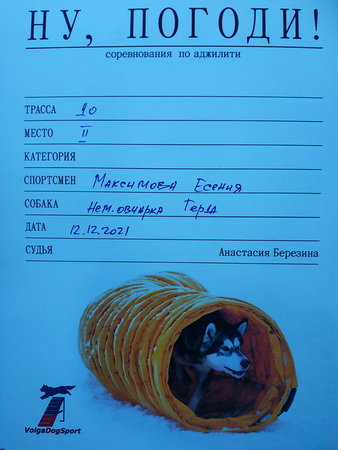 НУ, ПОГОДИ!
соревнования по аджилити
ТРАССА До
МЕСТО II
КАТЕГОРИЯ
СПОРТСМЕН Максимова Есения
СОБАКА Нем. овчарка Герда
ДАТА 12.12.2021
СУДЬЯ Анастасия Березина
VolgaDogSport